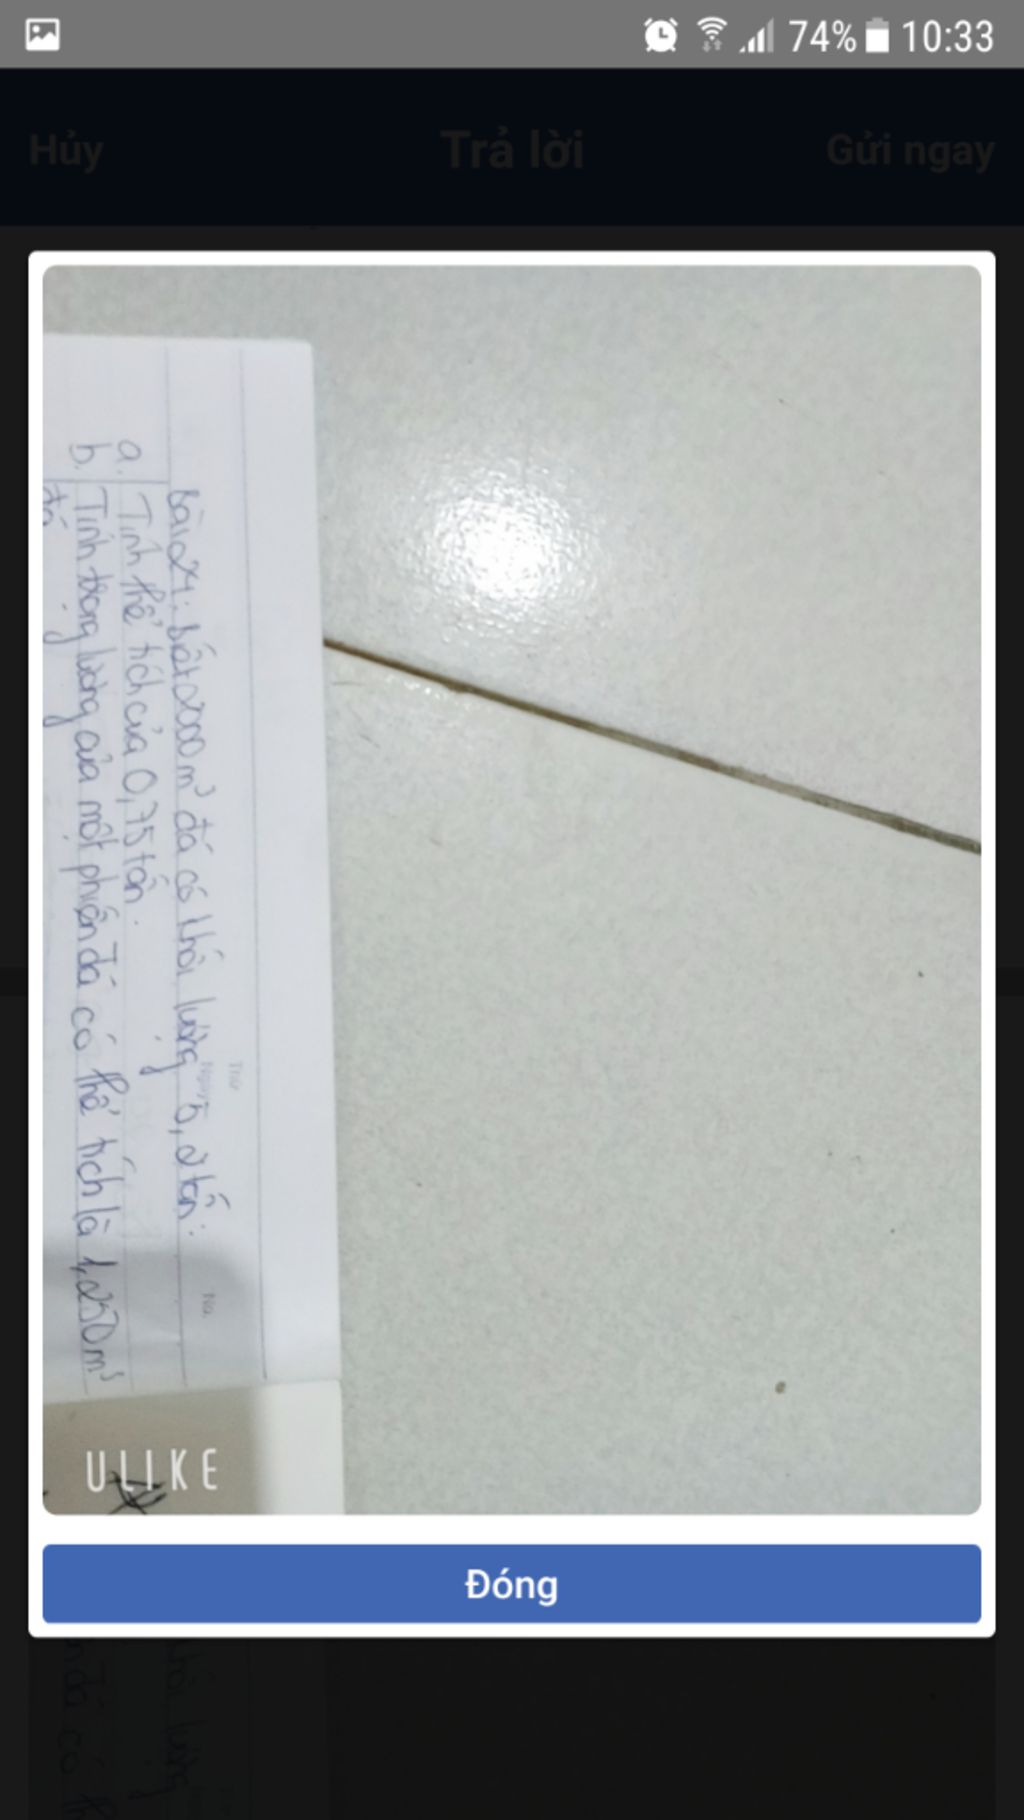 74% 10:33
Hủy Trả lời Gửi ngay
Bài 24: biết 2000m³ đá có khối lượng 5,2 tấn:
a. Tính thể tích của 0,75 tấn.
b. Tính trọng lượng của một phiến đá có thể tích là 1,250m³
Thứ
Ngày
No.
ULIKE
Đóng